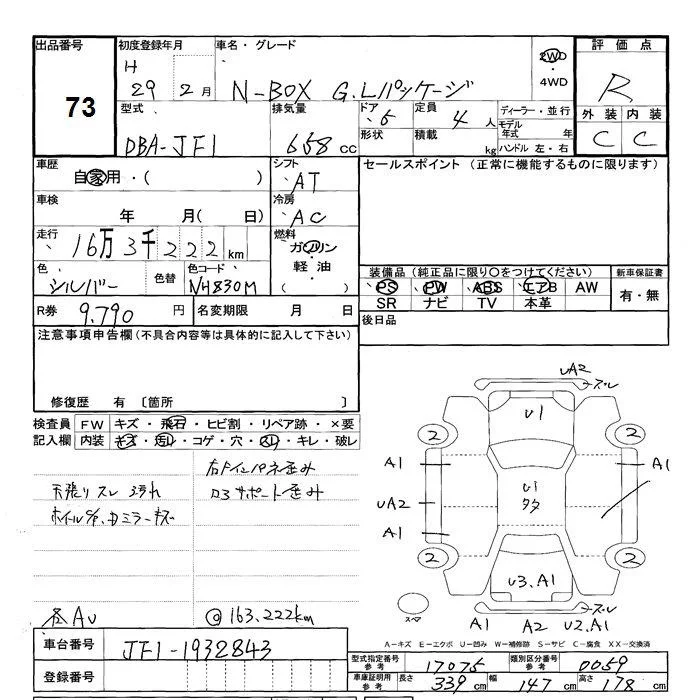 出品番号 73
初度登録年月 H 29年 2月
車名・グレード N-BOX G.Lパッケージ
2WD・4WD
評価点 R
外装 C 内装 C
型式 DBA-JF1
排気量 658 cc
ドア 5
形状
定員 4人
積載 kg
ディーラー・並行
モデル年式 年
ハンドル 左・右
車歴 自家用・( )
シフト AT
車検 年 月( 日)
冷房 AC
走行 16万3千222km
燃料 ガソリン・軽油・( )
色 シルバー 色替 色コード NH830M
R券 9.790円
名変期限 月 日
セールスポイント(正常に機能するものに限ります)
装備品(純正品に限り○をつけてください)
PS PW ABS エアB AW
SR ナビ TV 本革
新車保証書 有・無
後日品
注意事項申告欄(不具合内容等は具体的に記入して下さい)
修復歴 有〔箇所 〕
検査員記入欄
FW キズ・飛石・ヒビ割・リペア跡・×要
内装 キズ・汚レ・コゲ・穴・スレ・キレ・破レ
右ドインパネ歪み
天張りスレ 汚れ
コアサポート歪み
ミラーキズ
各AU
@163.222km
車台番号 JF1-1932843
登録番号
UA2 スレ
U1
2 2
A1 A1
U1
タタ
UA2
A1
2 2
U3.A1
スペア
スレ
A1 A2 U2.A1
A-キズ E-エクボ U-凹み W-補修跡 S-サビ C-腐食 XX-交換済
型式指定番号参考 17075
類別区分番号参考 0059
車庫証明用参考 長さ 339cm 幅 147cm 高さ 178cm